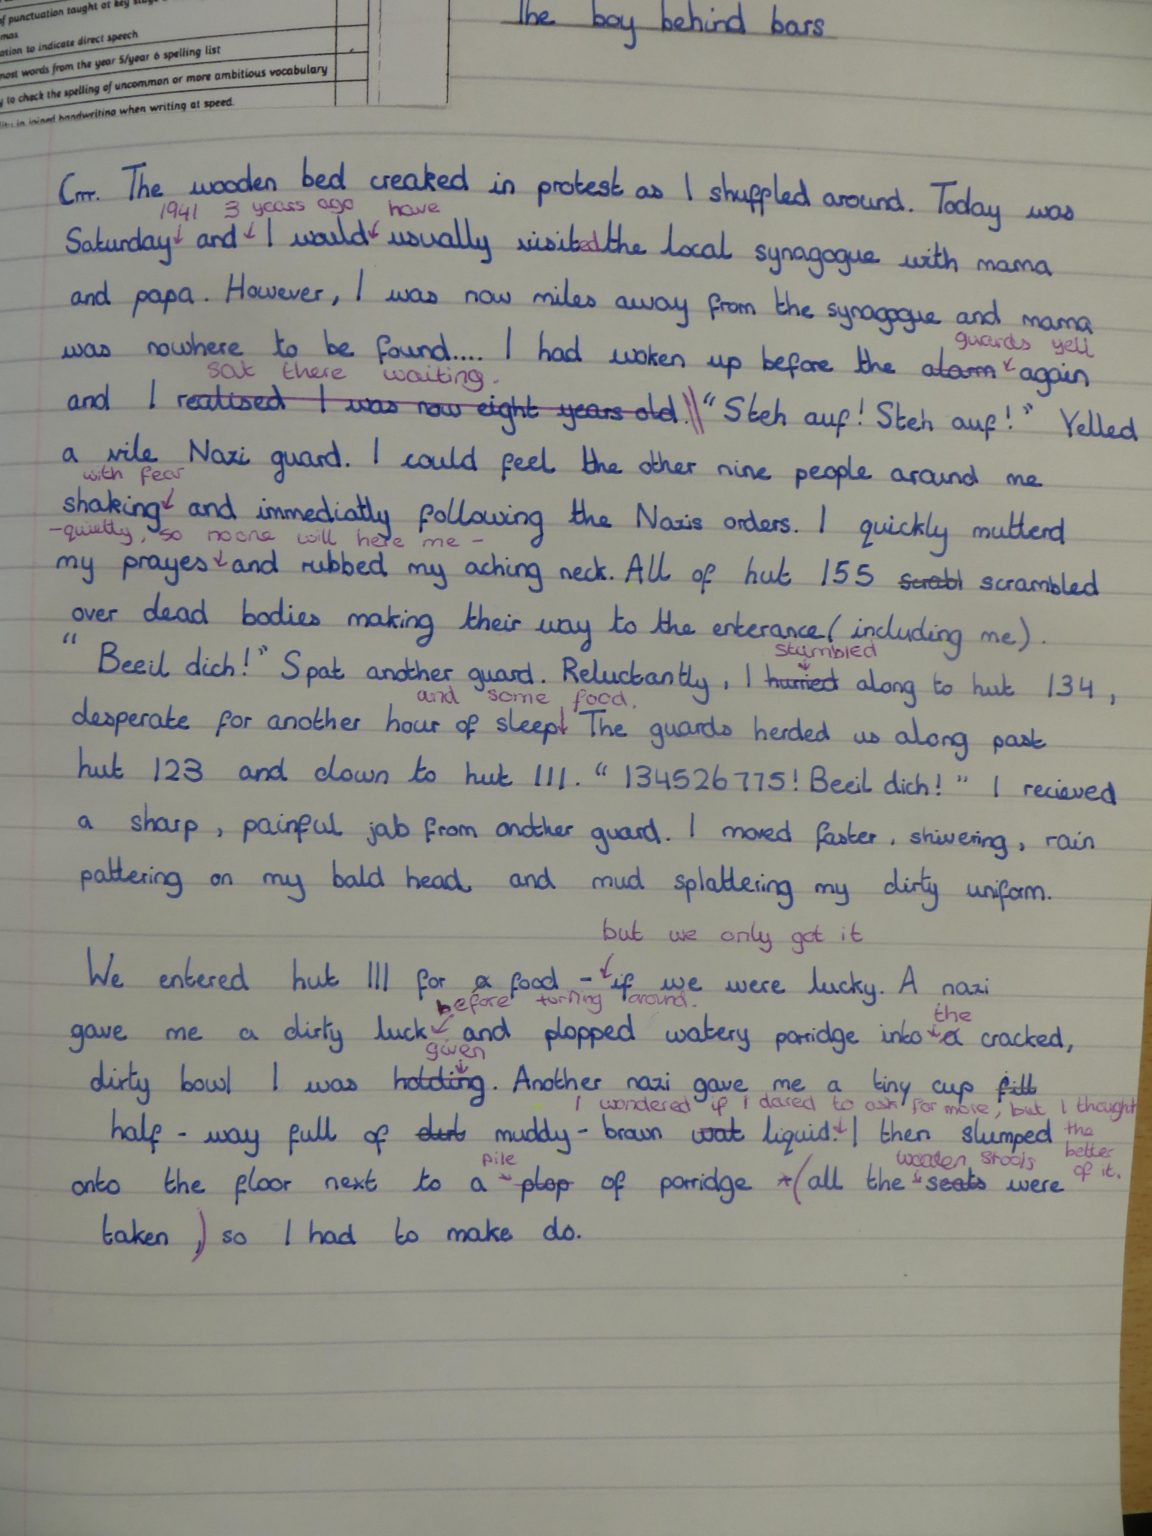 of punctuation taught at key stage
mas
ation to indicate direct speech
most words from the year 5/year 6 spelling list
y to check the spelling of uncommon or more ambitious vocabulary
in joined handwriting when writing at speed.
The boy behind bars
Crrr. The wooden bed creaked in protest as I shuffled around. Today was
1941 3 years ago have
Saturday and I would usually visited the local synagogue with mama
and papa. However, I was now miles away from the synagogue and mama
was nowhere to be found.... I had woken up before the alarm again
guards yell
sat there waiting.
and I realised I was now eight years old. "Steh auf! Steh auf!" Yelled
a vile Nazi guard. I could feel the other nine people around me
with fear
shaking and immediatly following the Nazis orders. I quickly mutterd
-quietly, so noone will here me -
my prayes and rubbed my aching neck. All of hut 155 scrabl scrambled
over dead bodies making their way to the enterance (including me).
stumbled
"Beeil dich!" Spat another guard. Reluctantly, I hurried along to hut 134,
and some food.
desperate for another hour of sleep. The guards herded us along past
hut 123 and down to hut 111. "134526775! Beeil dich!" I recieved
a sharp, painful jab from another guard. I moved faster, shivering, rain
pattering on my bald head and mud splattering my dirty uniform.
but we only got it
We entered hut 111 for a food - if we were lucky. A nazi
before turning around.
the
gave me a dirty luck and plopped watery porridge into a cracked,
given
dirty bowl I was holding. Another nazi gave me a tiny cup fill
I wondered if I dared to ask for more, but I thought the better of it.
half-way full of dirt muddy-brown wat liquid. I then slumped
pile wooden stools
onto the floor next to a plop of porridge (all the seats were
taken) so I had to make do.